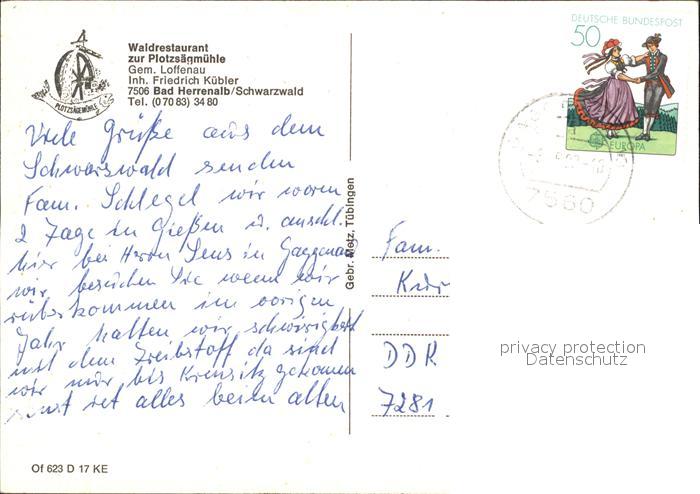 Waldrestaurant
zur Plotzsägmühle
Gem. Loffenau
Inh. Friedrich Kübler
7506 Bad Herrenalb/Schwarzwald
Tel. (0 70 83) 34 80
PLOTZSÄGEMÜHLE
DEUTSCHE BUNDESPOST
50
EUROPA
7560
Viele Grüße aus dem
Schwarzwald senden
Fam. Schlegel wir waren
2 Tage in Gießen u. anschl.
hier bei Herrn in Gaggenau
wir besuchen Sie wenn wir
rüberkommen im vorigen
Jahr hatten wir schwirigkeit
mit dem Treibstoff da sind
wir nur bis gekommen
sonst ist alles beim alten
Gebr. Metz, Tübingen
Fam.
DDR
7281
privacy protection
Datenschutz
Of 623 D 17 KE